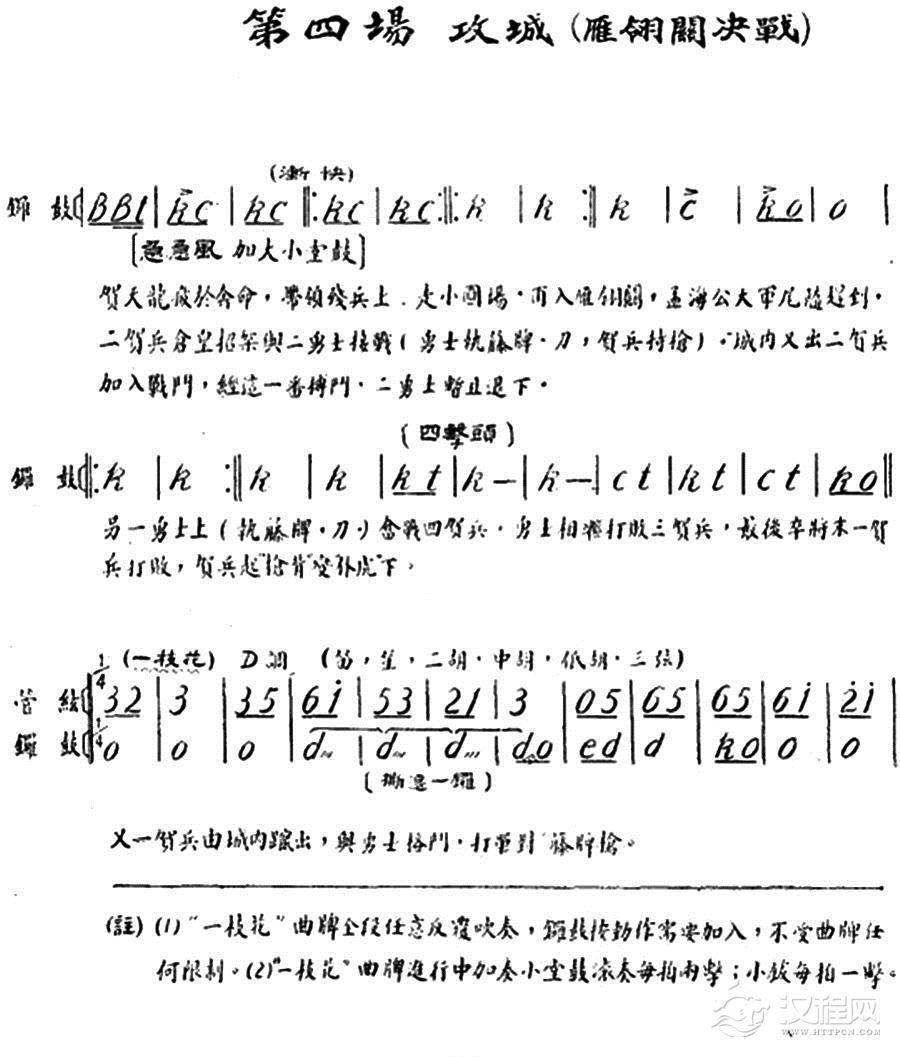 第四場 攻城(雁翎關决戰)
(漸快)
鑼鼓 BBl | kc | kc ‖: kc | kc :‖: k | k :‖ k | c | ko | o |
[急急風 加大小堂鼓]
賀天龍疲於奔命,帶領殘兵上.走小圓場·而入雁翎關,孟海公大軍尾隨趕到·
二賀兵倉皇招架與二勇士接戰(勇士執藤牌·刀,賀兵持搶)·城内又出二賀兵
加入戰鬥,經這一番搏鬥·二勇士暫且退下·
(四擊頭)
鑼鼓 ‖: k | k :‖ k | k | kt | k— | k— | ct | kt | ct | ko ‖
另一勇士上(執藤牌·刀)會戰四賀兵·勇士相繼打敗三賀兵,最後卒將末一賀
兵打敗,賀兵起"搶背"變卧虎下。
1/4 (一枝花) D調 (笛,笙,二胡·中胡,低胡·三弦)
管絃 32 | 3 | 35 | 6i | 53 | 21 | 3 | 05 | 65 | 65 | 6i | 2i |
鑼鼓 1/4 o | o | o | d | d | d | do | ed | d | ko | o | o |
(撕邊一鑼)
又一賀兵由城内躍出,與勇士格鬥·打單對"藤牌搶。
(註)(1)"一枝花"曲牌全段任意反覆吹奏,鑼鼓按動作需要加入,不受曲牌任
何限制。(2)"一枝花"曲牌進行中加奏小堂鼓滚奏每拍兩擊;小鈸每拍一擊。
汉程网
HTTPCN.COM